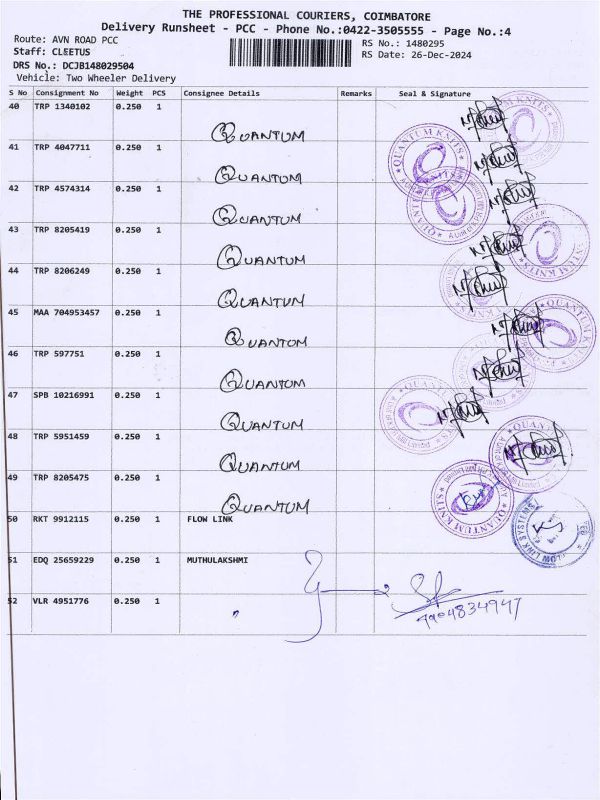 THE PROFESSIONAL COURIERS, COIMBATORE
Delivery Runsheet - PCC - Phone No.:0422-3505555 - Page No.:4
Route: AVN ROAD PCC
RS No.: 1480295
Staff: CLEETUS
RS Date: 26-Dec-2024
DRS No.: DCJB148029504
Vehicle: Two Wheeler Delivery
S No Consignment No Weight PCS Consignee Details Remarks Seal & Signature
40 TRP 1340102 0.250 1
QUANTUM
41 TRP 4047711 0.250 1
QUANTUM
42 TRP 4574314 0.250 1
QUANTUM
43 TRP 8205419 0.250 1
QUANTUM
44 TRP 8206249 0.250 1
QUANTUM
45 MAA 704953457 0.250 1
QUANTUM
46 TRP 597751 0.250 1
QUANTUM
47 SPB 10216991 0.250 1
QUANTUM
48 TRP 5951459 0.250 1
QUANTUM
49 TRP 8205475 0.250 1
QUANTUM
50 RKT 9912115 0.250 1 FLOW LINK
51 EDQ 25659229 0.250 1 MUTHULAKSHMI
52 VLR 4951776 0.250 1 "
QUANTUM KNITS
QUANTUM KNITS
FLOW LINK SYSTEMS